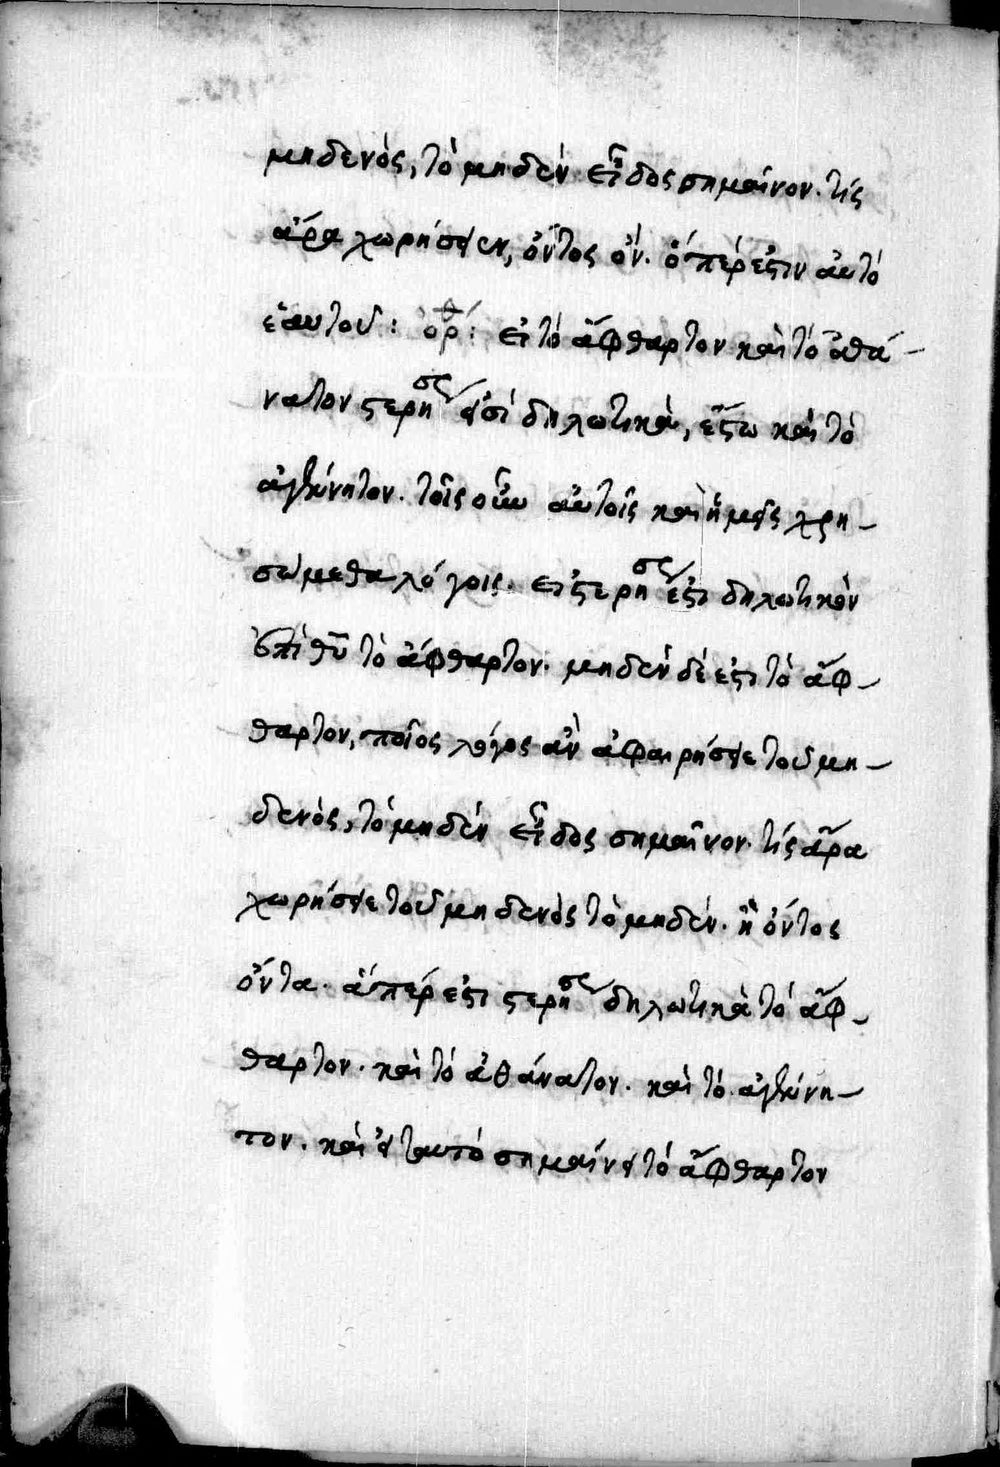 μηδενὸς, τὸ μηδὲν εἶδος σημαῖνον. τίς
ἄρα χωρήσειεν, ὄντος ὄν. ὅπέρ ἐστιν αὐτὸ
ἑαυτοῦ: ὀρθ: εἰ τὸ ἄφθαρτον καὶ τὸ ἀθά-
νατον στερήσεως εἰσὶ δηλωτικὰ, ἔστω καὶ τὸ
ἀγέννητον. τοῖς οὖν αὐτοῖς καὶ ἡμεῖς χρη-
σώμεθα λόγοις. εἰ στερήσεώς ἐστι δηλωτικὸν
ἐπὶ θυ τὸ ἄφθαρτον. μηδὲν δέ ἐστι τὸ ἄφ-
θαρτον, ποῖος λόγος ἂν ἀφαιρήσειε τοῦ μη-
δενὸς, τὸ μηδὲν εἶδος σημαῖνον. τίς ἄρα
χωρήσειε τοῦ μηδενὸς τὸ μηδέν. ἢ ὄντος
ὄντα. ἅπέρ ἐστι στερήσεως δηλωτικὰ τὸ ἄφ-
θαρτον. καὶ τὸ ἀθάνατον. καὶ τὸ ἀγέννη-
τον. καὶ εἰ ταυτὸ σημαίνει τὸ ἄφθαρτον